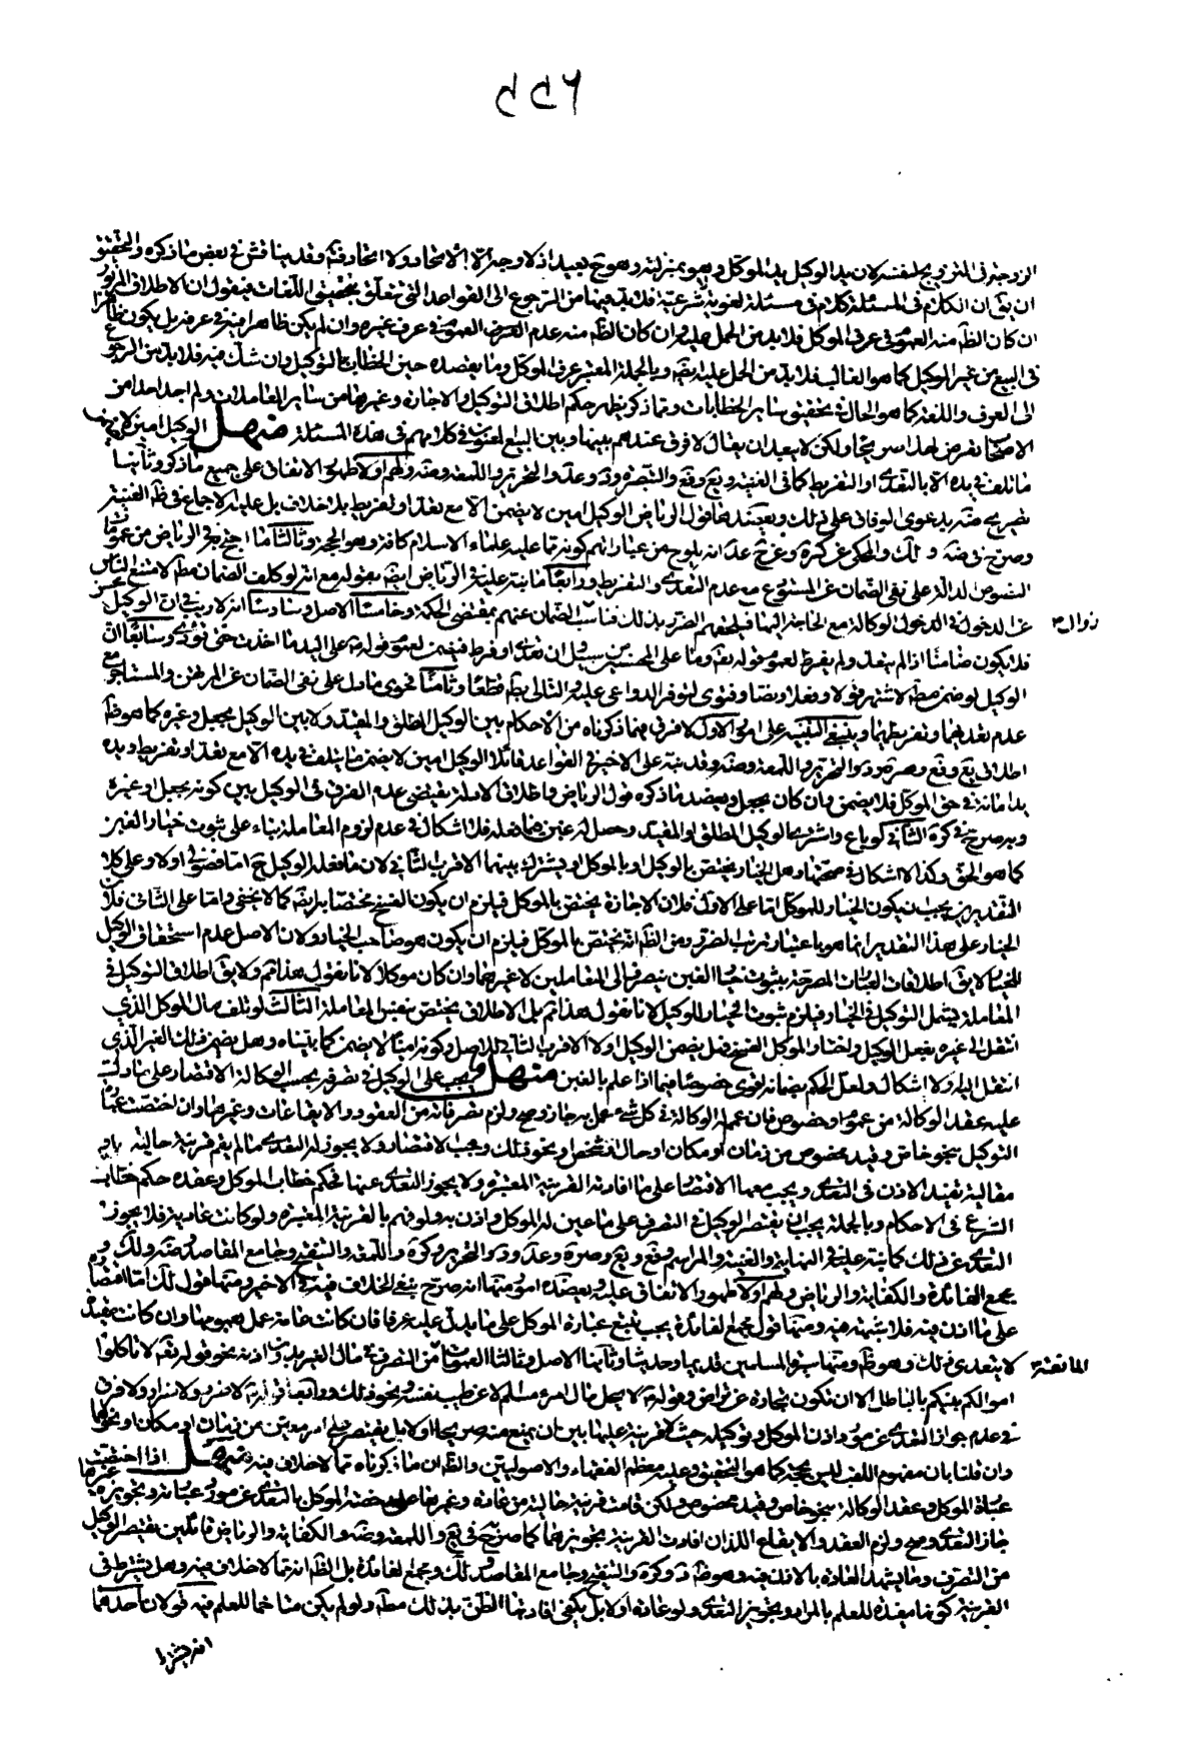 الزوجة فى التزويج لنفسه لان يد الوكيل يد الموكل وهو بمنزلته وهو بعيد اذ لا وجه الا الاتحاد ولا اتحاد فتم وقد يناقش فى بعض ما ذكره والتحقيق
ان يق ان الكلام فى المسئلة كلام فى مسئلة لغوية لا شرعية فلا بد فيها من الرجوع الى القواعد التى تتعلق بتحقيق اللغات فنقول ان الاطلاق المزبور
ان كان الظ منه العموم فى عرف الموكل فلا بد من الحمل عليه وان كان الظ منه عدم العموم فى عرف غيره وان لم يكن ظاهرا منه فى عرفه بل يكون ظاهرا
فى البيع من غير الوكيل كما هو الغالب فلا بد من الحمل عليه ايضه وبالجملة المعتبر عرف الموكل وما يقصده حين الخطاب بالتوكيل وان شك فيه فلا بد من الرجوع
الى العرف واللغة كما هو الحال فى تحقيق ساير الخطابات ومما ذكر يظهر حكم اطلاق التوكيل فى الاجارة وغيرها من ساير المعاملات ولم اجد احدا من
الاصحاب تعرض لهذا صريحا ولكن لا يبعد ان يقال لا فرق عندهم بينها وبين البيع المعنون فى كلامهم فى هذه المسئلة منهل الوكيل امين لا يضمن
ما تلف فى يده الا بالتعدى او التفريط كما فى الغنية ويع وقع والتبصرة ود وعد والتحرير واللمعة وضه ولهم اولا ظهور الاتفاق على جميع ما ذكر وثانيها
تصريح ضه بدعوى الوفاق على ذلك ويعضده قول الرياض الوكيل امين لا يضمن الا مع تعد او تفريط بلا خلاف بل عليه الاجماع فى ظ الغنية
وصرح فى ضه ولك والمحكى عن كرة وعن عد انه يلوح من عباراتهم كونه مما عليه علماء الاسلام كافة وهو الحجة وثالثا ما احتج به فى الرياض من عموم
النصوص الدالة على نفى الضمان عن المستودع مع عدم التعدى والتفريط ورابعا ما نبه عليه فى الرياض ايضه بقوله مع انه لو كلف الضمان مط لامتنع الناس
عن الدخول فى الوكالة مع الحاجة اليها فيلحقهم الضرر بذلك فناسب الضمان عنهم بمقتضى الحكمة وخامسا الاصل وسادسا انه لا ريب فى ان الوكيل محسن
زوال
فلا يكون ضامنا اذا لم يتعد ولم يفرط لعموم قوله تعه وما على المحسنين من سبيل ان تعدى او فرط فيضمن لعموم قوله ص على اليد ما اخذت حتى تؤدى وسابعا ان
الوكيل لو ضمن مط لاشتهر قولا وفعلا ونصا وفتوى لتوفر الدواعى عليه والتالى بط قطعا وثامنا فحوى ما دل على نفى الضمان عن المرتهن والمستاجر مع
عدم تعديهما وتفريطهما وينبغى التنبيه على امور الاول لا فرق فيما ذكرناه من الاحكام بين الوكيل المطلق والمقيد ولا بين الوكيل بجعل وغيره كما هو ظ
اطلاق يع وقع وصرة ود والتحرير واللمعة وضه وقد نبه على الاخير فى القواعد قائلا الوكيل امين لا يضمن ما يتلف فى يده الا مع تعد او تفريط ويده
يد امانة فى حق الموكل فلا يضمن وان كان بجعل ويعضد ما ذكره قول الرياض واطلاق الادلة يقتضى عدم الفرق فى الوكيل بين كونه بجعل او غيره
وبه صرح فى كرة الثانى لو باع واشترى الوكيل المطلق او المقيد وحصل له غبن فيما فعله فلا اشكال فى عدم لزوم المعاملة بناء على ثبوت خيار الغبن
كما هو الحق وكذا لا اشكال فى صحتها وهل الخيار يختص بالوكيل او بالموكل او يشترك بينهما الاقرب الثانى لان ما فعله الوكيل ح اما فضولى او لا وعلى كلا
التقديرين يجب ان يكون الخيار للموكل اما على الاول فلان الاجازة يختص بالموكل فيلزم ان يكون الفسخ مختصا به ايضه كما لا يخفى واما على الثانى فلان
الخيار على هذا التقدير انما هو باعتبار ترتب الضرر ومن الظ انه يختص بالموكل فيلزم ان يكون هو صاحب الخيار ولان الاصل عدم استحقاق الوكيل
للخيار لا يق اطلاقات العبارات المصرحة بثبوت خيار الغبن ينصرف الى المتعاملين لا غيرهما وان كان موكلا لانا نقول هذا تم ولا يق اطلاق التوكيل فى
المعاملة يشمل التوكيل فى الخيار فيلزم ثبوت الخيار للوكيل لانا نقول هذا تم بل الاطلاق يختص بنفس المعاملة الثالث لو تلف مال الموكل الذى
انتقل الى غيره بفعل الوكيل واختار الموكل الفسخ فهل يضمن الوكيل ولا الاقرب الثانى للاصل وكونه امينا لا يضمن كما بيناه وهل يضمن ذلك الغير الذى
انتقل اليه ولا اشكال ولعل الحكم بضمانه اقوى خصوصا فيما اذا علم بالغبن منهل يجب على الوكيل فى تصرفه بحسب الوكالة الاقتصار على ما دلت
عليه عقد الوكالة من عموم او خصوص فان عمت الوكالة فى كل شىء عمل به جاز وصح ولزم تصرفاته من العقود والايقاعات وغيرهما وان اختصت عبارة
التوكيل بنحو خاص وقيد مخصوص من زمان او مكان او حال او شخص او نحو ذلك وجب الاقتصار ولا يجوز له التعدى عنه ما لم يقم قرينة حالية او
مقالية تفيد الاذن فى التعدى ويجب معها الاقتصار على ما افادته القرينة المعتبرة ولا يجوز التعدى عنها فحكم خطاب الموكل وعقده حكم خطاب
الشرع فى الاحكام وبالجملة يجب ان يقتصر الوكيل فى التصرف على ما عين له الموكل واذن به ولو فهم بالقرينة المعتبرة ولو كانت عادية فلا يجوز
التعدى عن ذلك كما نبه عليه فى النهاية والغنية والمراسم وقع ويع وصرة وعد ود والتحرير وكرة واللمعة والتنقيح وجامع المقاصد وضه ولك و
مجمع الفائدة والكفاية والرياض ولهم اولا ظهور الاتفاق عليه ويعضده امور منها انه صرح بنفى الخلاف فيه فى الاخير ومنها قول لك اما اقتصاره
على ما اذن فيه فلا شبهة فيه ومنها قول مجمع الفائدة يجب تتبع عبارة الموكل على ما يدل عليه عرفا فان كانت عامة عمل بعمومها وان كانت مقيدة
لا يتعدى ذلك وهو ظ ومنها سيرة المسلمين قديما وحديثا وثانيها الاصل وثالثا العمومات المانعة من التصرف فى مال الغير بدون اذنه نحو قوله تعه لا تاكلوا
المانعة
اموالكم بينكم بالباطل الا ان تكون تجارة عن تراض وقوله ص لا يحل مال امرء مسلم الا عن طيب نفسه ونحو ذلك ورابعا قوله ص لا ضرر ولا ضرار ولا فرق
فى عدم جواز التعدى عن مورد اذن الموكل وتوكيله حيث لا قرينة عليها بين ان يمنع منه صريحا او لا بل يقتصر على امر معين من زمان او مكان او نحوهما
وان قلنا بان مفهوم اللقب ليس بحجة كما هو التحقيق وعليه معظم الفقهاء والاصوليين والظ ان ما ذكرناه مما لا خلاف فيه منهل اذا اختصت
عبارة الموكل وعقد الوكالة بنحو خاص وقيد مخصوص ولكن قامت قرينة حالية من عادة وغيرها على رخصة الموكل بالتعدى عن مورد عبارته وتجويزه غيرها
جاز التعدى وصح ولزم العقد والايقاع اللذان افادت القرينة تجويزهما كما صرح به فى يع واللمعة وضه والكفاية والرياض قائلين يقتصر الوكيل
من التصرف وما يشهد العادة بالاذن فيه وهو ظ د وكرة والتنقيح وجامع المقاصد ولك ومجمع الفائدة بل الظ انه مما لا خلاف فيه وهل يشترط فى
القرينة كونها مفيدة للعلم بالمراد وتجويز التعدى ولو عادة او لا بل يكفى افادتها الظن بذلك مط ولو لم يكن متاخما للعلم فيه قولان احدهما
انه يشترط